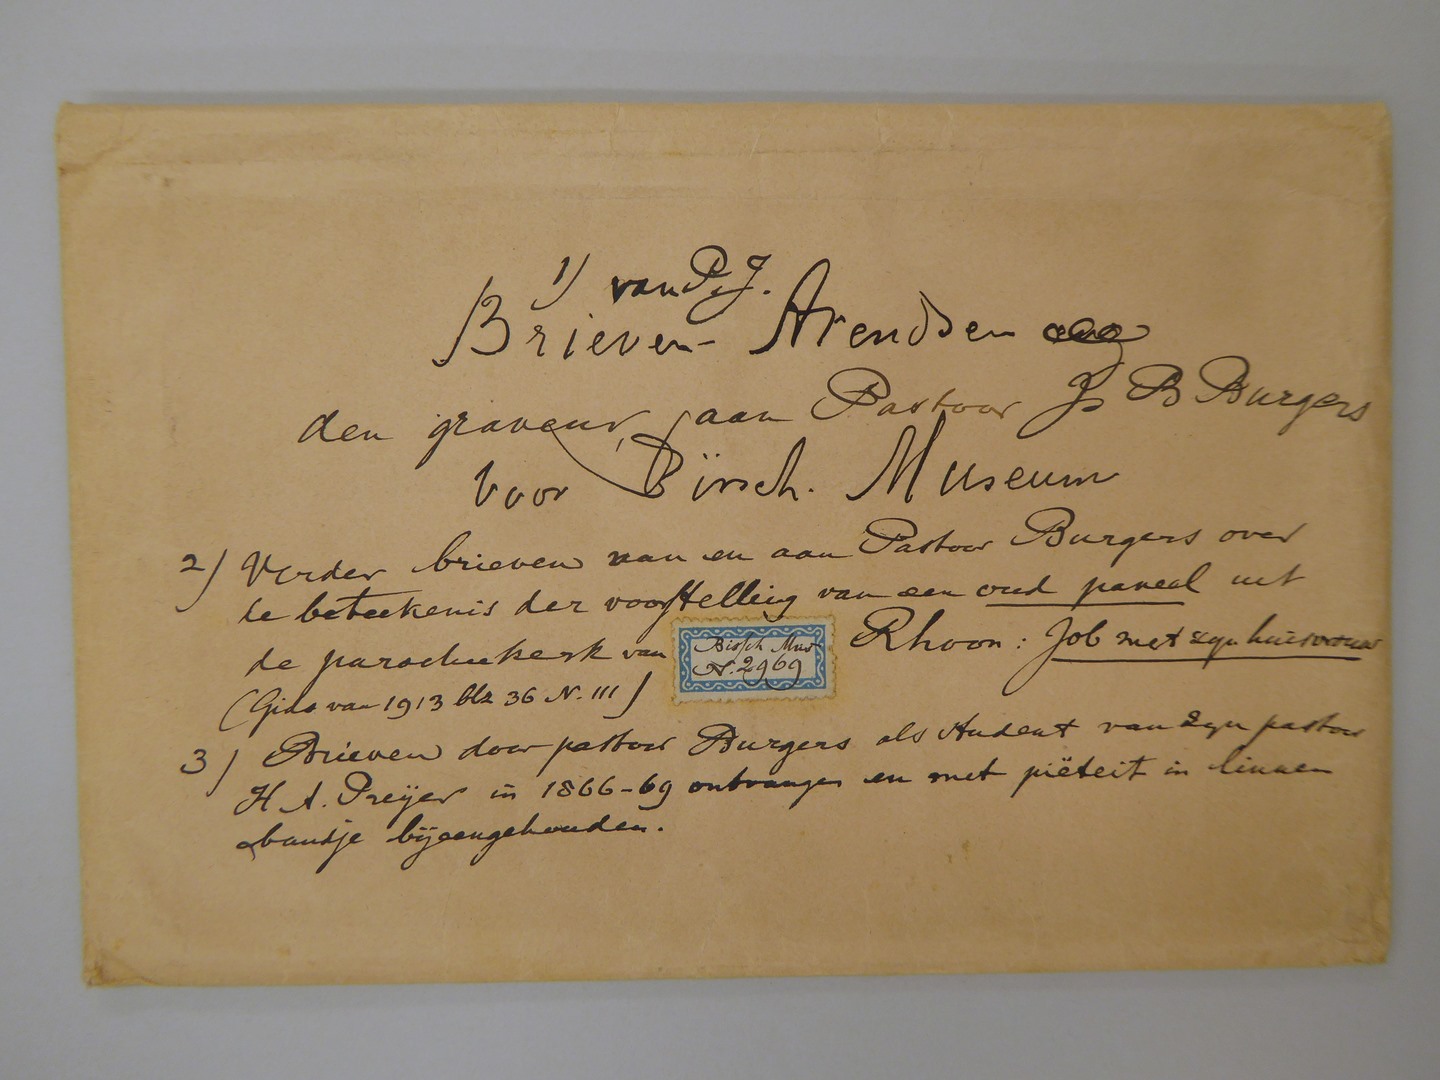 1) van P. J.
Brieven - Arendsen
den graveur, aan Pastoor J. B Burgers
voor Bissch. Museum
2) Verder brieven van en aan Pastoor Burgers over
de beteekenis der voorstelling van een oud paneel uit
de parochiekerk van Rhoon: Job met zijn huisvrouw
Bissch Mus
N. 2969
(Gids van 1913 blz 36 N. III)
3) Brieven door pastoor Burgers als student van zijn pastoor
H A. Preijer in 1866-69 ontvangen en met piëteit in linnen
bandje bijeengehouden.